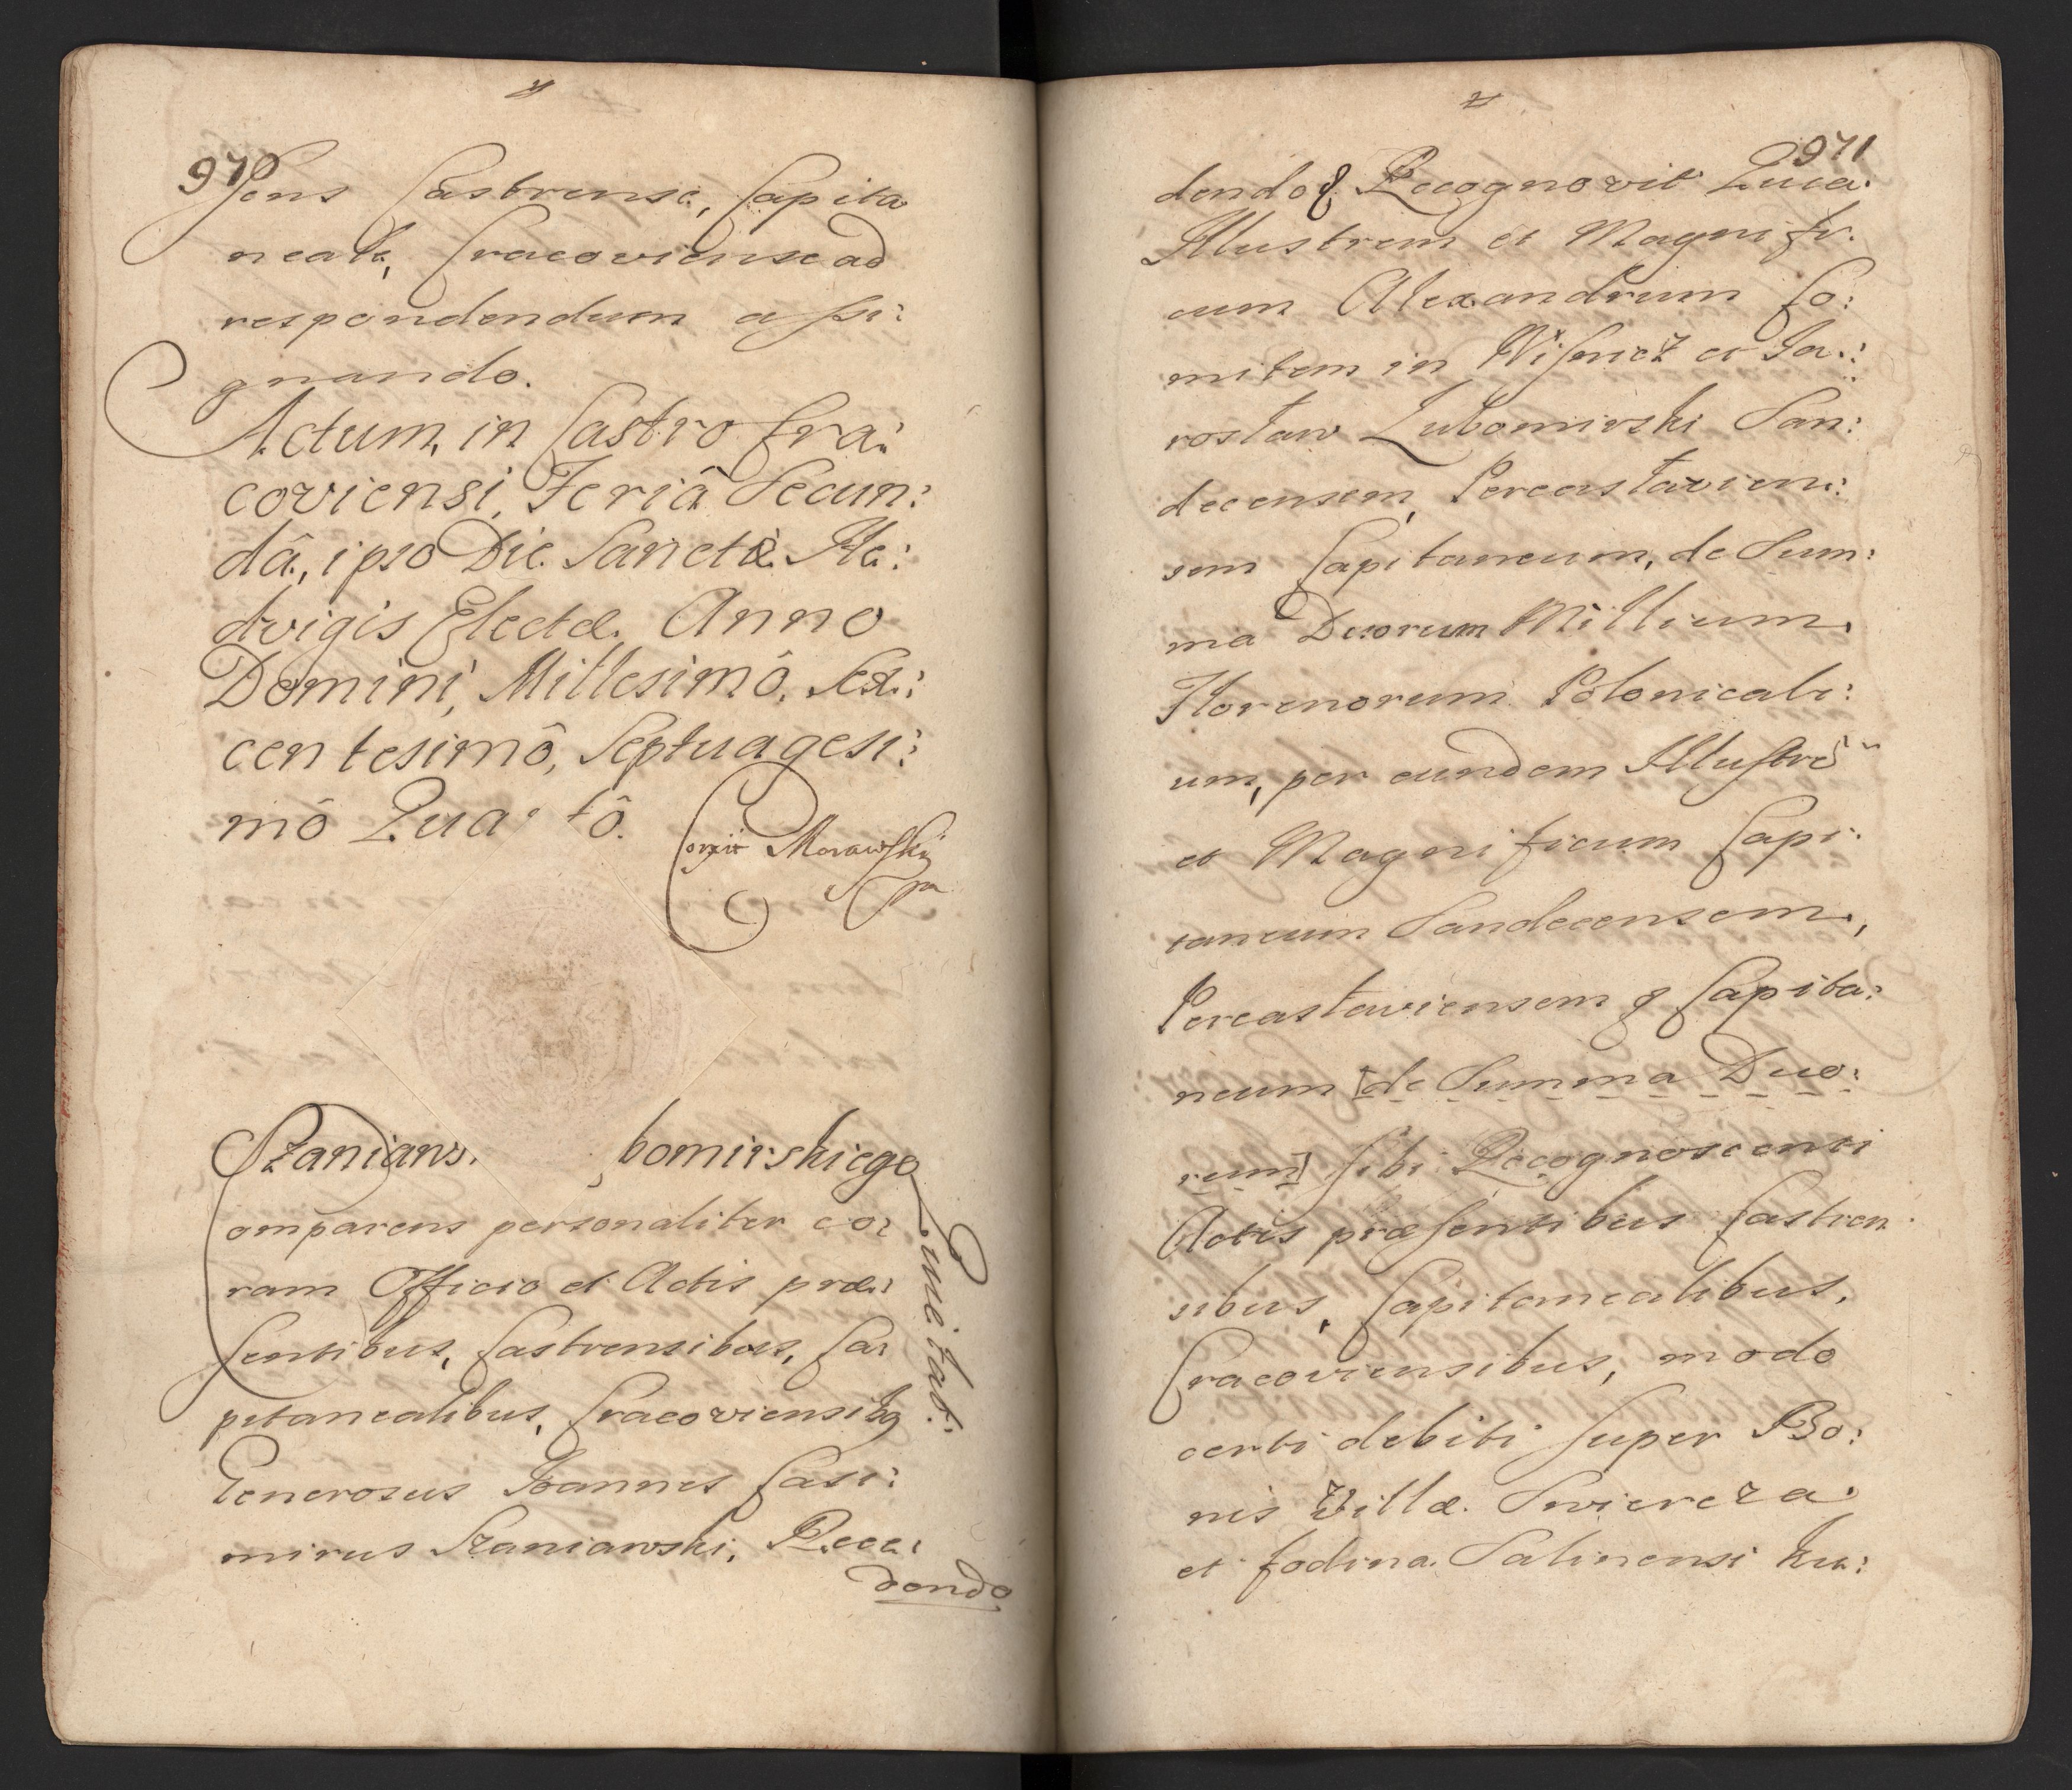 970
sens Castrense, Capita
neale, Cracoviense ad
respondendum assi:
gnando.
Actum, in Castro Cra:
coviensi, Feriâ Secun:
dâ, ipso Die Sanctæ He:
dvigis Electæ. Anno
Domini, Millesimô, Sex:
centesimô, Septuagesi:
mô Qua tô.
Morawsky
Szaniaws. bomirskiego
Quietat:
omparens personaliter co:
ram Officio et Actis præ:
sentibus, Castrensibus, Ca:
pitanealibus, Cracoviensibq
Generosus Joannes Casi:
mirus Szaniawski, Rece:
dendo
971
dendo & Recognovit Quia
Illustrem et Magnifi:
cum Alexandrum Co:
mitem in Wisnicz et Ja:
rosław Lubomirski San:
decensem, Pereasłavien:
sem Capitaneum, de Sum:
ma Duorum Millium
Florenorum Polonicali:
um, per eundem Illustrē
et Magnificum Capi:
taneum Sandecensem,
Pereasławiensem q Capita:
neum [de Summa Duo:
rum] sibi Recognoscenti
Actis præsentibus Castren
sibus, Capitanealibus,
Cracoviensibus, modo
certi debiti super Bo:
nis Villæ Swiercza
et fodina Salinensi Ku: